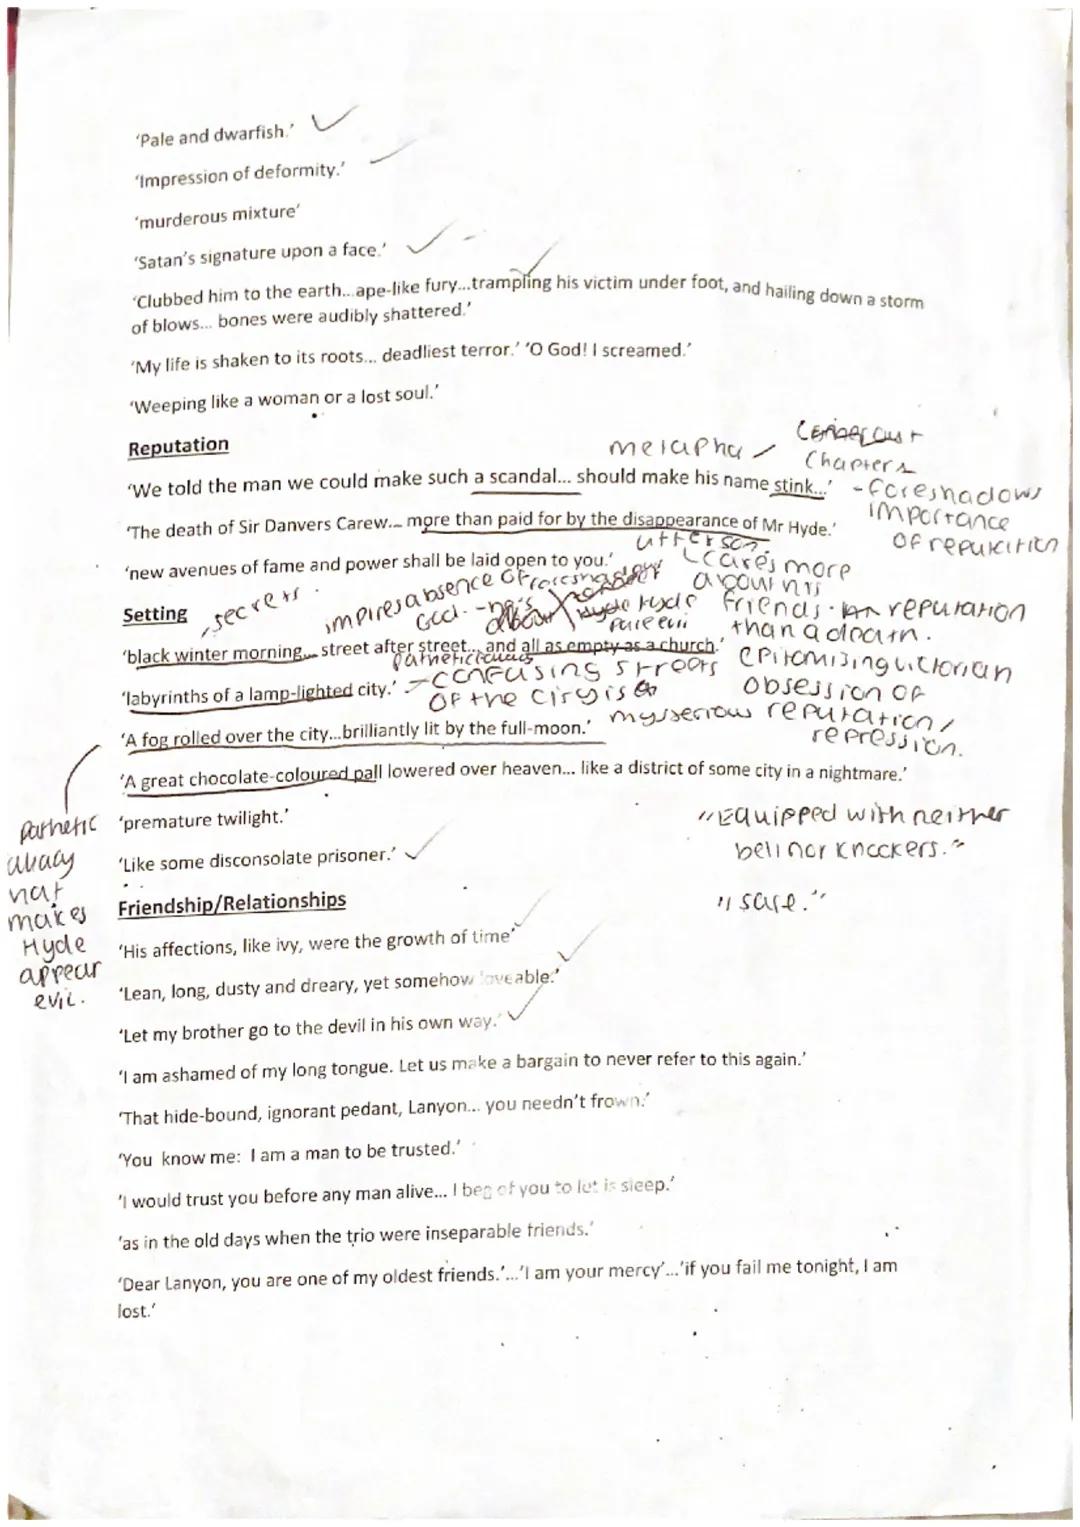 'Pale and dwarfish.'
'Impression of deformity.'
'murderous mixture'
'Satan's signature upon a face.'
'Clubbed him to the earth...ape-like fury...trampling his victim under foot, and hailing down a storm
of blows... bones were audibly shattered.'
'My life is shaken to its roots... deadliest terror.' 'O God! I screamed.'
'Weeping like a woman or a lost soul.'
Reputation
metapho
Chapters
'We told the man we could make such a scandal... should make his name stink...'
- foreshadows
importance
of reputation
'The death of Sir Danvers Carew... more than paid for by the disappearance of Mr Hyde.'
utterson
cares more
about his
friends reputation
than a death.
epitomising victorian
obsession of
reputation/
repression.
'new avenues of fame and power shall be laid open to you.'
Setting
secrets
impires absence of
God.
Hyde
pure evil
'black winter morning... street after street... and all as empty as a church.'
'labyrinths of a lamp-lighted city.'
- confusing streets
of the city is
mysterious
'A fog rolled over the city...brilliantly lit by the full-moon.'
'A great chocolate-coloured pall lowered over heaven... like a district of some city in a nightmare.'
'premature twilight.'
'Like some disconsolate prisoner.'
pathetic
makes
Hyde
appear
evil.
"Equipped with neither
bell nor knockers."
Friendship/Relationships
'His affections, like ivy, were the growth of time'
'Lean, long, dusty and dreary, yet somehow loveable.'
'Let my brother go to the devil in his own way.'
'I am ashamed of my long tongue. Let us make a bargain to never refer to this again.'
'That hide-bound, ignorant pedant, Lanyon... you needn't frown.'
'You know me: I am a man to be trusted.'
'I would trust you before any man alive... I beg of you to let is sleep.'
'as in the old days when the trio were inseparable friends.'
'Dear Lanyon, you are one of my oldest friends.'...'I am your mercy'...'if you fail me tonight, I am
lost.'